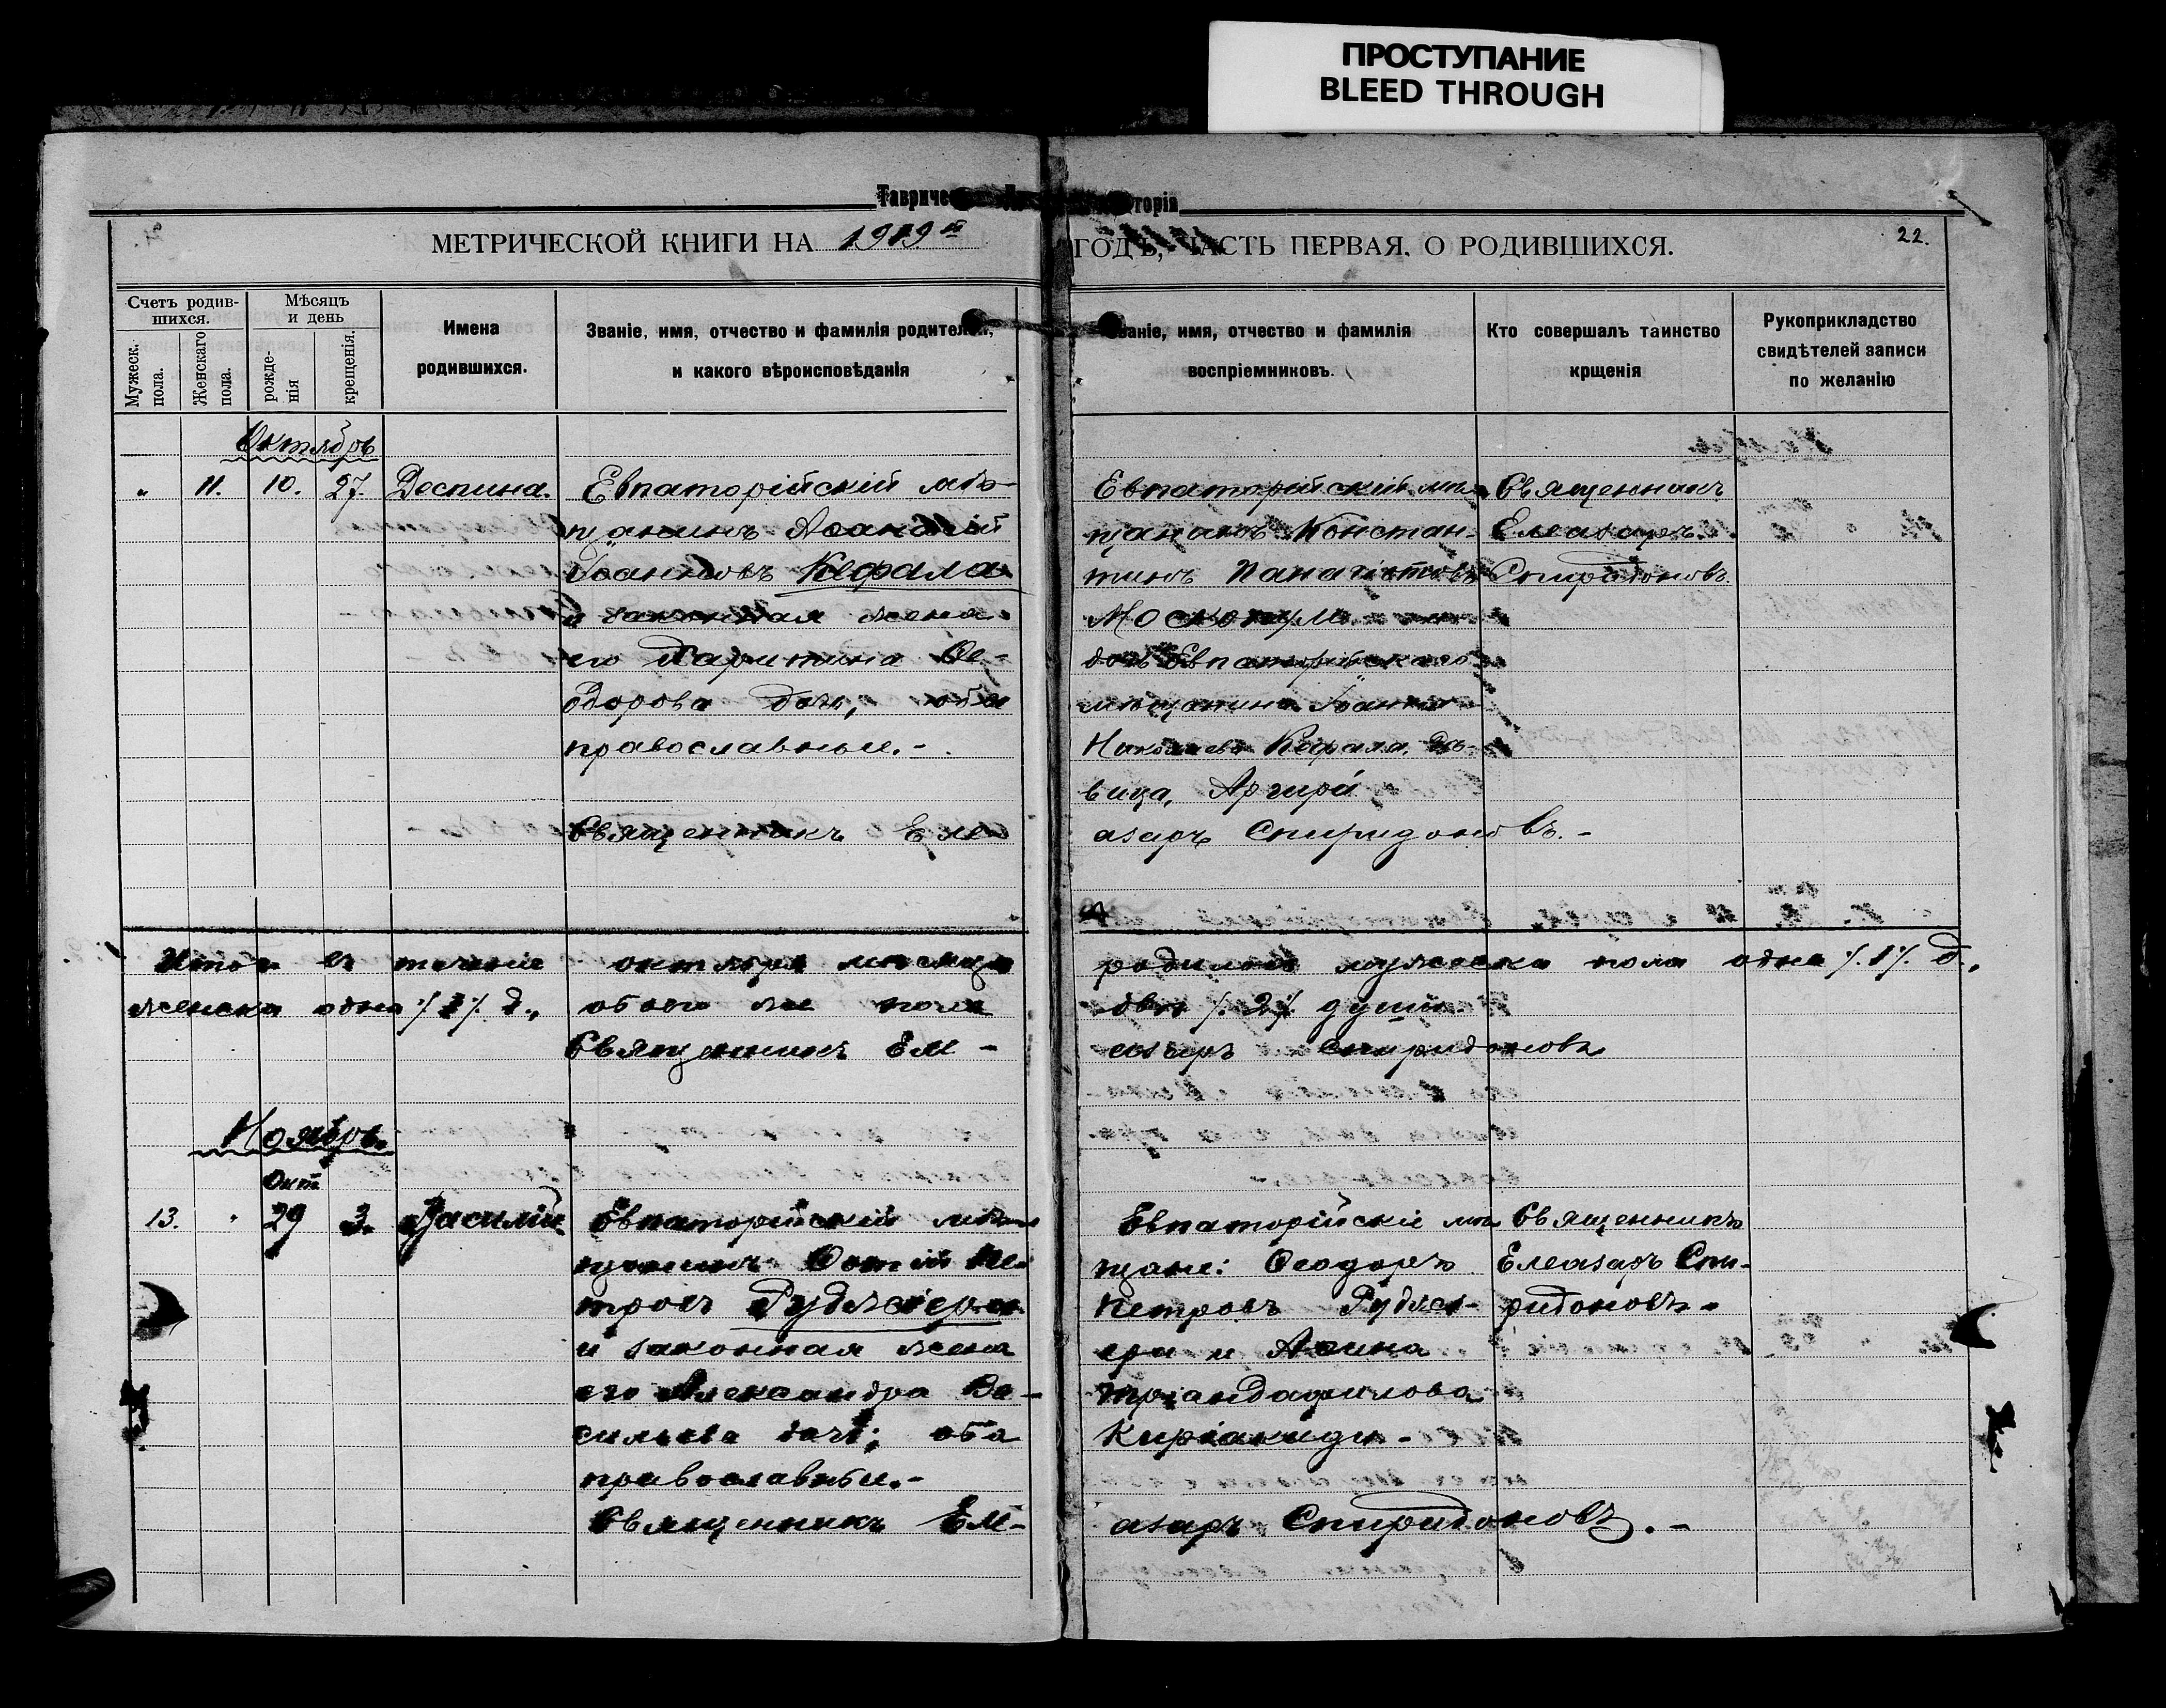 ПРОСТУПАНИЕ
BLEED THROUGH
Тавриче
торія
МЕТРИЧЕСКОЙ КНИГИ НА 1919 й ГОДЪ, ЧАСТЬ ПЕРВАЯ, О РОДИВШИХСЯ.
22.
Счетъ родив-
шихся.
Мужеск.
пола.
Женскаго
пола.
Мѣсяцъ
и день
рожде-
нія
крещенія.
Имена
родившихся.
Званіе, имя, отчество и фамилія родителей,
и какого вѣроисповѣданія
Званіе, имя, отчество и фамилія
воспріемниковъ.
Кто совершалъ таинство
крщенія
Рукоприкладство
свидѣтелей записи
по желанію
Октябрь
" 11. 10. 27. Деспина.
Евпаторійскій мѣ-
щанинъ
Іоанновъ Кефала
и законная жена
его Харитина Ѳе-
одорова дочь, оба
православные.-
Евпаторійскій мѣ-
щанинъ Констан-
тинъ Панагіотовъ
дочь Евпаторійскаго
мѣщанина Іоанна
Николаева Кефала, дѣ-
вица, Аргири
Священникъ
Елеазаръ
Спиридоновъ.
Священникъ Еле
азаръ Спиридоновъ.-
Итого въ теченіе октября мѣсяца родилось мужеска пола одна /.1/. д.,
женска одна /.1/. д., обоего же пола двѣ /.2/. души.
Священникъ Еле-
азаръ Спиридоновъ
Ноябрь.
Окт
13. " 29 3. Василій
Евпаторійскій мѣ-
щанинъ Фотій Пе-
тровъ Руджіери
и законная жена
его Александра Ва-
сильева дочь; оба
православные.-
Евпаторійскіе мѣ-
щане: Ѳеодоръ
Петровъ Рудже-
ери и Аѳина
Тріандафилова
Киріакиди-
Священникъ
Елеазаръ Спи-
ридоновъ.
Священникъ Еле-
азаръ Спиридоновъ.-